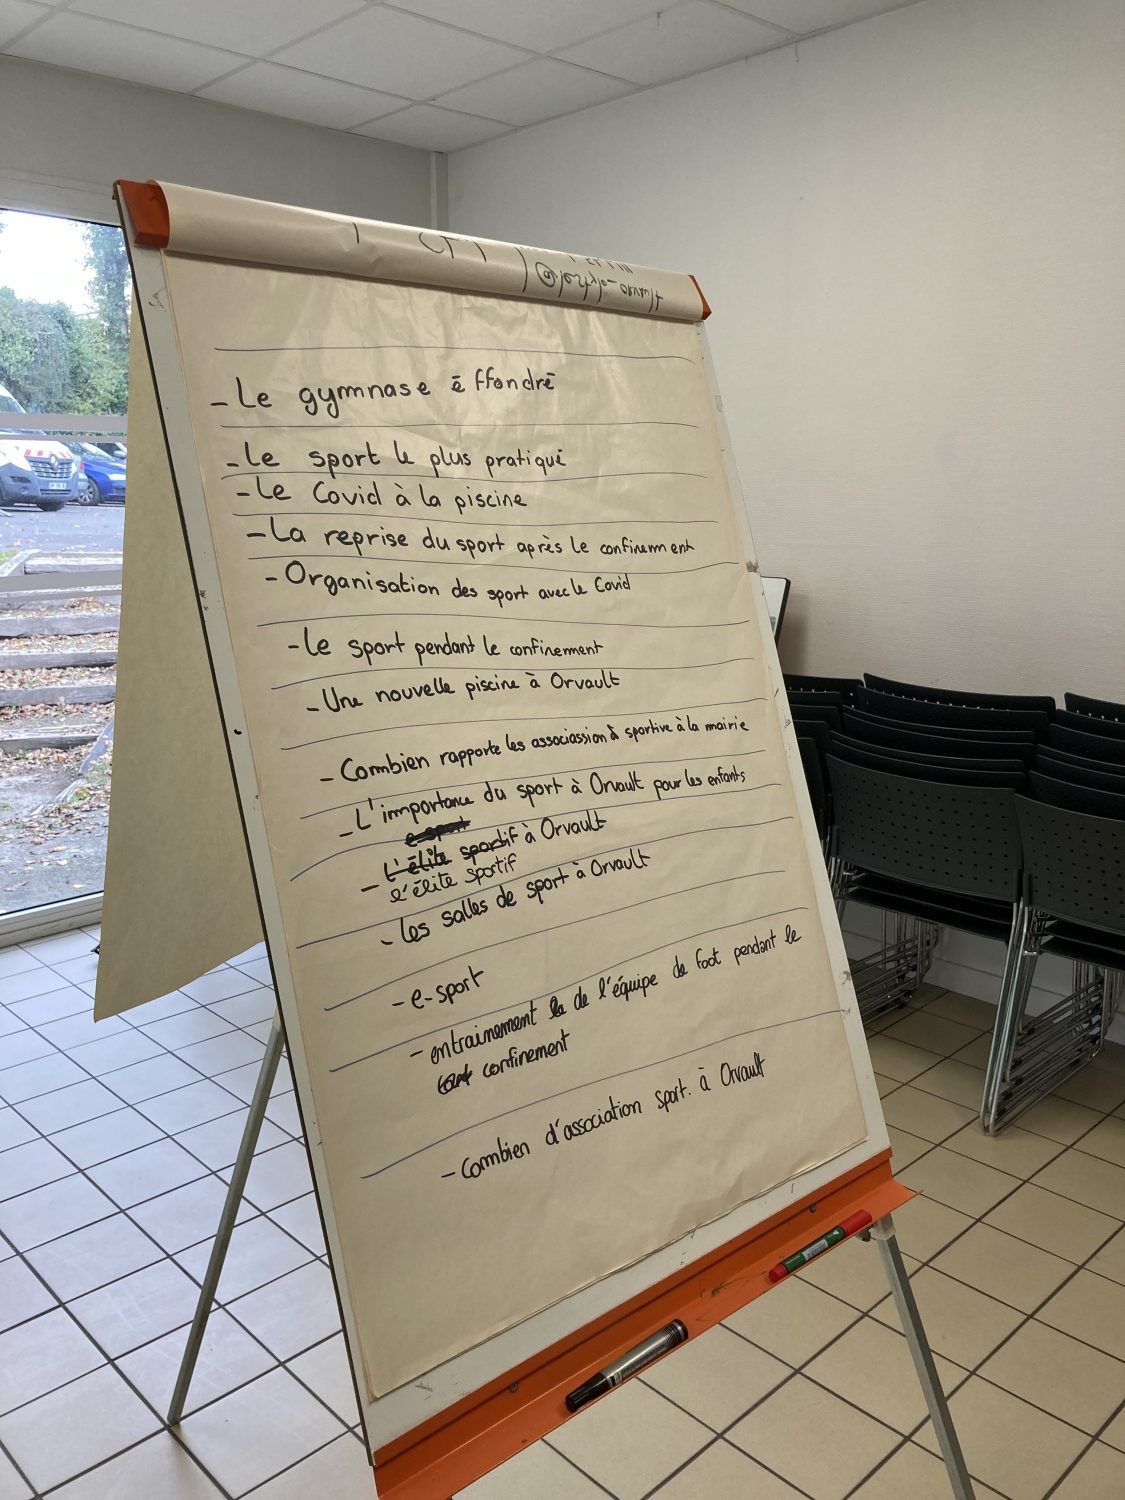 - Le gymnase éffondré
- Le sport le plus pratiqué
- Le Covid à la piscine
- La reprise du sport après le confinemment
- Organisation des sport avec le Covid
- Le sport pendant le confinemment
- Une nouvelle piscine à Orvault
- Combien rapporte les associassion à sportive à la mairie
- L'importance du sport à Orvault pour les enfants
e-sport
- L'élite sportif à Orvault
l'élite sportif
- Les salles de sport à Orvault
- e-sport
- entrainement la de l'équipe de foot pendant le
confinement
- Combien d'association sport. à Orvault